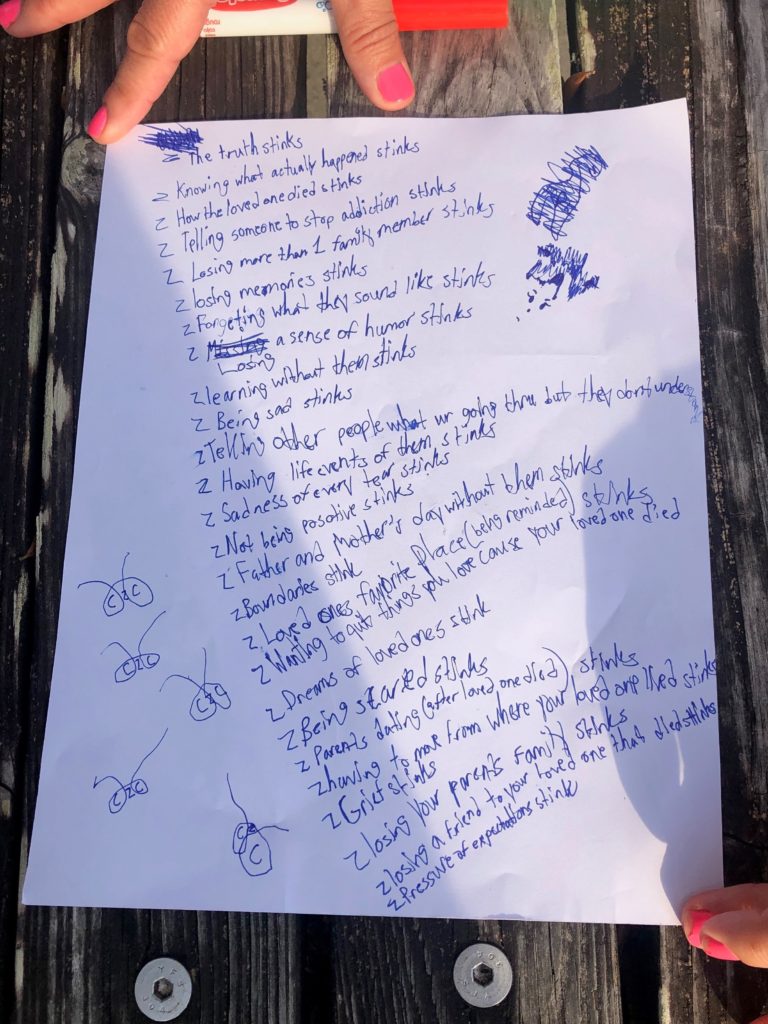 z The truth stinks
z Knowing what actually happened stinks
z How the loved one died stinks
z Telling someone to stop addiction stinks
z Losing more than 1 family member stinks
z losing memories stinks
z Forgeting what they sound like stinks
z Missing a sense of humor stinks
Losing
z learning without them stinks
z Being sad stinks
z Telling other people what wr going thru but they dont under
z Having life events of them stinks
z Sadness of every tear stinks
z Not being posotive stinks
z Father and Mother's day without them stinks
z Boundaries stink
z Loved ones favorite place (being reminded) stinks
z Wanting to quit things you love cause your loved one died
z Dreams of loved ones stink
z Being scared stinks
z Parents dating (after loved one died) stinks
z having to move from where your loved one lived stinks
z Grief stinks
z losing your parents Family stinks
z losing a friend to your loved one that died stinks
z Pressure of expectations stink
C z C
C z C
C z C
C z C
C z
C